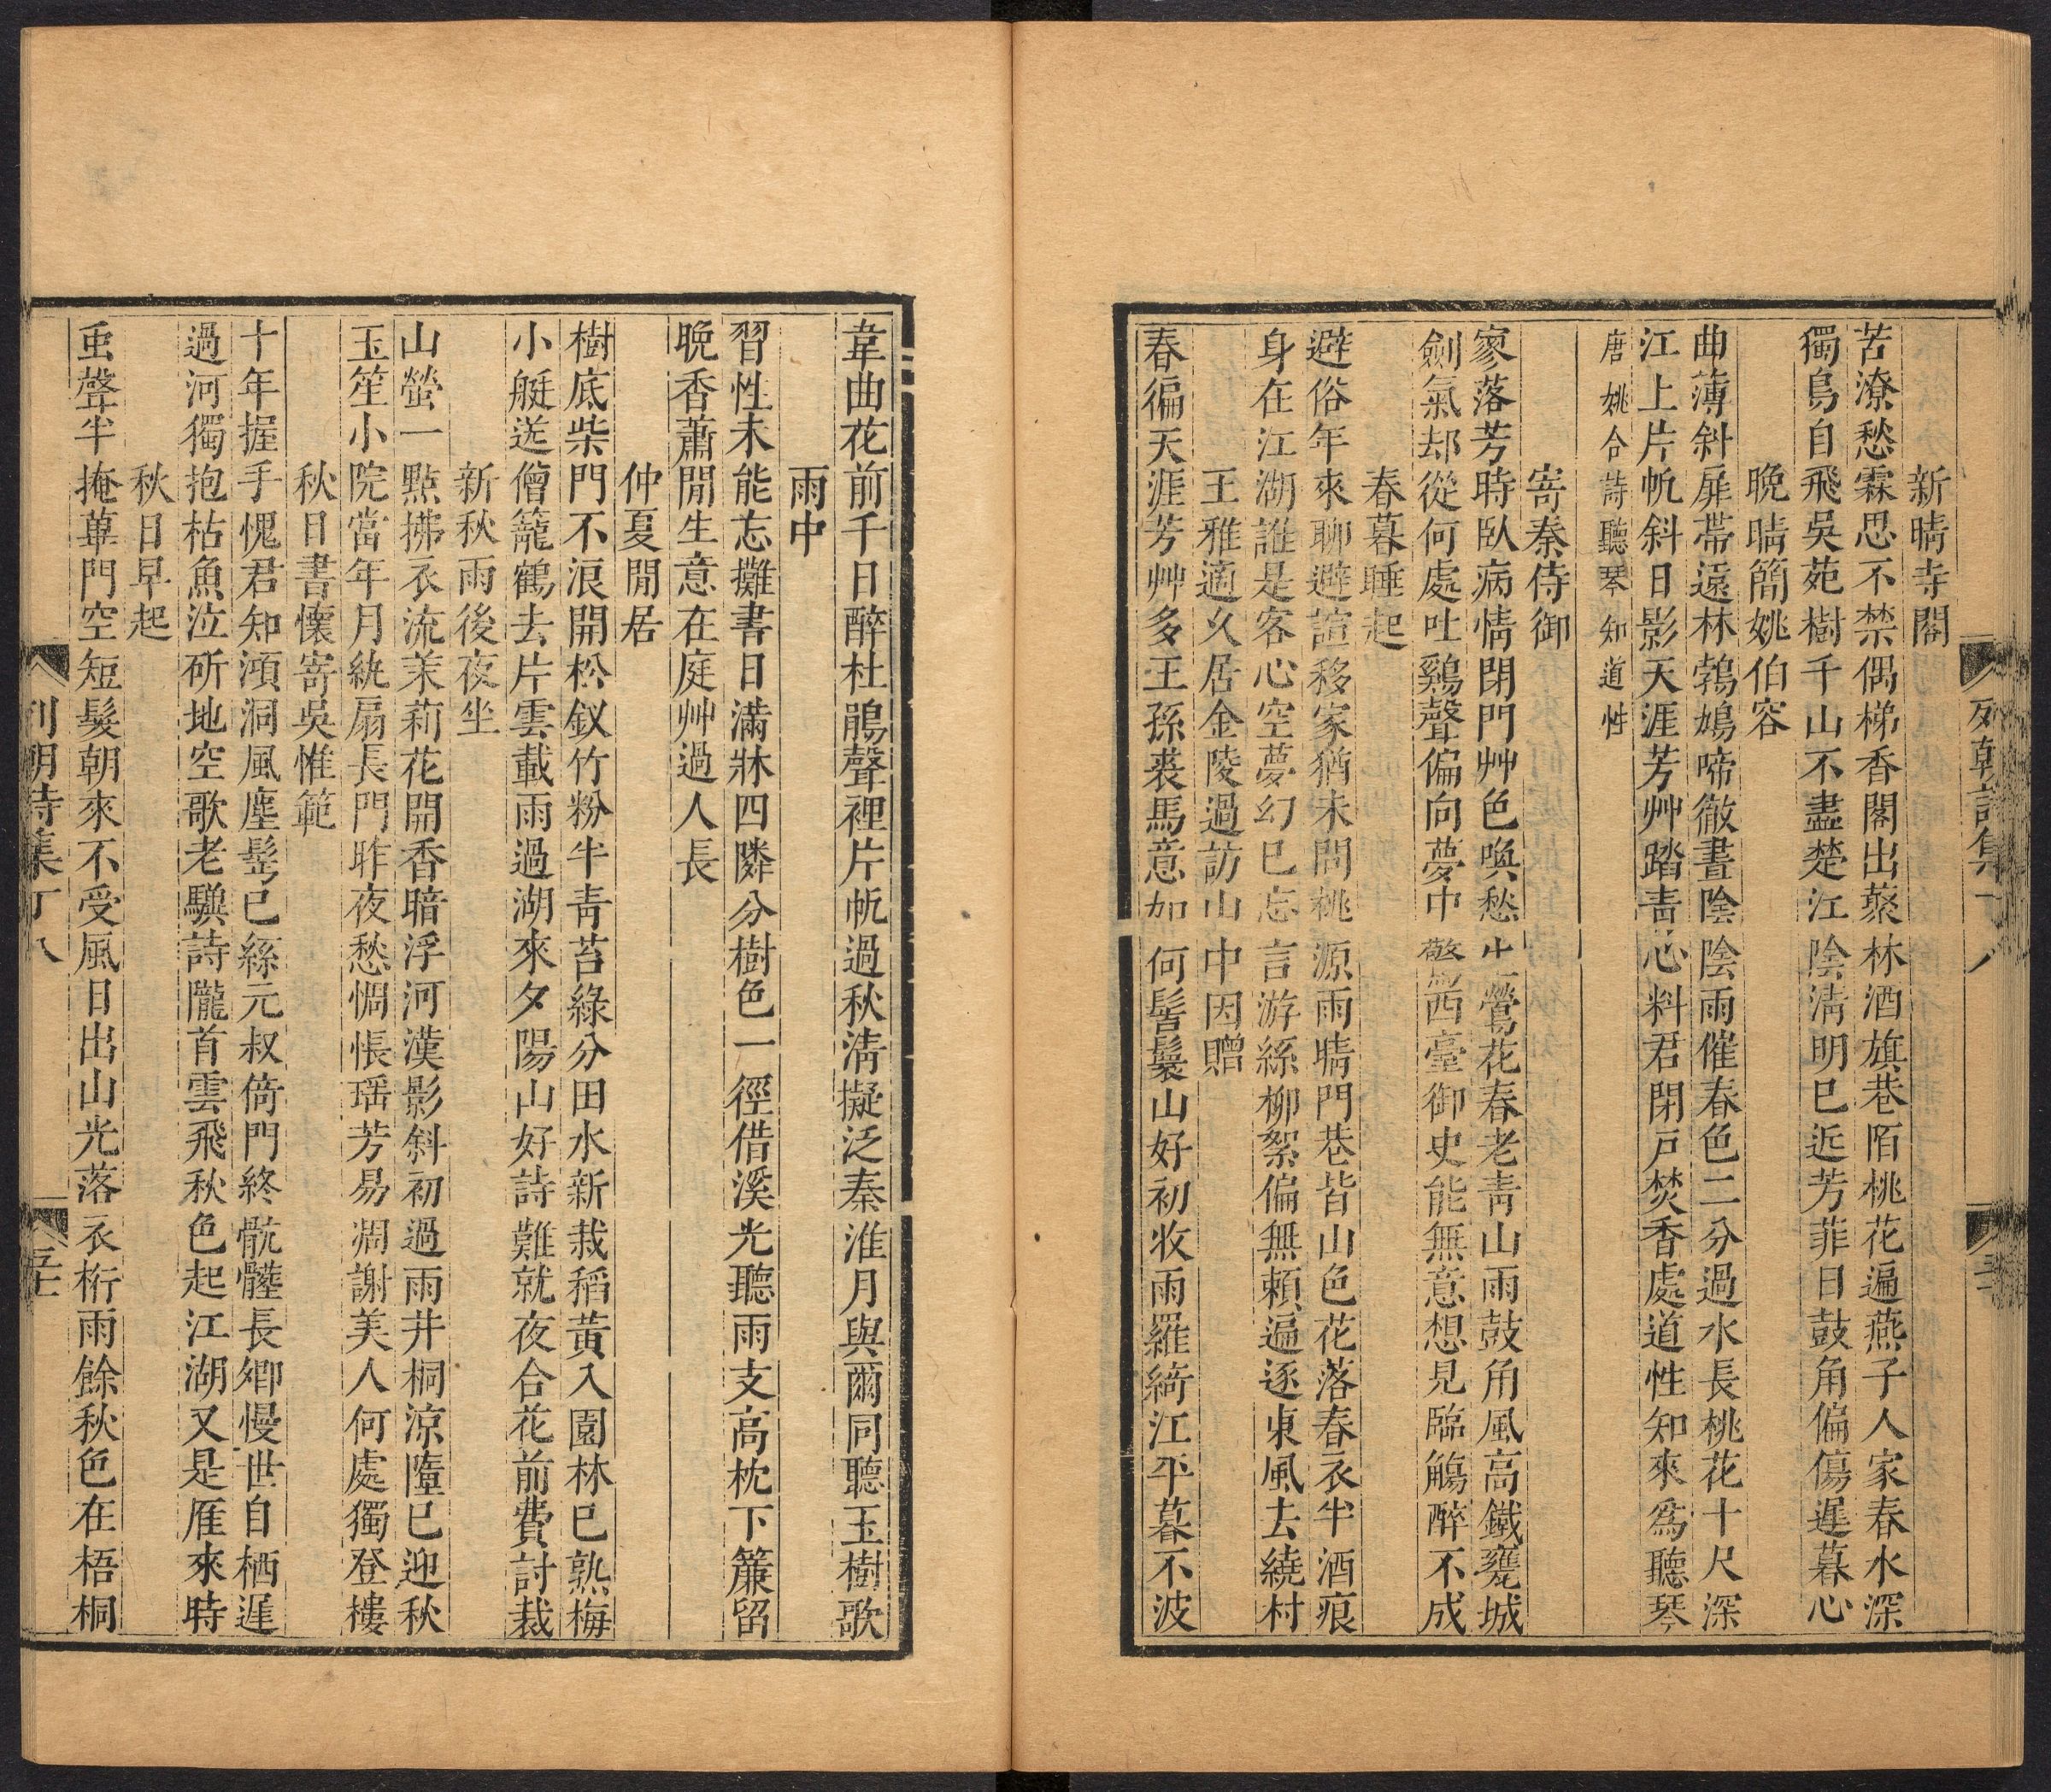 新晴寺閣
苦潦愁霖思不禁偶梯香閣出藂林酒旗巷陌桃花遍燕子人家春水深
獨鳥自飛吳苑樹千山不盡楚江陰淸明已近芳菲日鼓角偏傷遲暮心
晚晴簡姚伯容
曲薄斜扉帶遠林鵓鳩啼徹晝陰陰雨催春色二分過水長桃花十尺深
江上片帆斜日影天涯芳艸踏靑心料君閉戸焚香處道性知來爲聽琴
唐姚合詩聽琴知道性
寄秦侍御
寥落芳時臥病情閉門艸色喚愁生鶯花春老靑山雨鼓角風高鐵甕城
劍氣却從何處吐鷄聲偏向夢中驚西臺御史能無意想見臨觴醉不成
春暮睡起
避俗年來聊避諠移家猶未問桃源雨晴門巷皆山色花落春衣半酒痕
身在江湖誰是客心空夢幻已忘言游絲柳絮偏無賴遍逐東風去繞村
王雅適久居金陵過訪山中因贈
春徧天涯芳艸多王孫裘馬意如何髻鬟山好初收雨羅綺江平暮不波
韋曲花前千日醉杜鵑聲裡片帆過秋淸擬泛秦淮月與爾同聽玉樹歌
雨中
習性未能忘攤書日滿牀四隣分樹色一徑借溪光聽雨支高枕下簾留
晚香蕭閒生意在庭艸過人長
仲夏閒居
樹底柴門不浪開松釵竹粉半靑苔綠分田水新栽稻黃入園林已熟梅
小艇送僧籠鶴去片雲載雨過湖來夕陽山好詩難就夜合花前費討裁
新秋雨後夜坐
山螢一點拂衣流茉莉花開香暗浮河漢影斜初過雨井桐涼墮已迎秋
玉笙小院當年月紈扇長門昨夜愁惆悵瑶芳易凋謝美人何處獨登樓
秋日書懷寄吳惟範
十年握手愧君知澒洞風塵髩已絲元叔倚門終骯髒長卿慢世自栖遲
過河獨抱枯魚泣斫地空歌老驥詩隴首雲飛秋色起江湖又是雁來時
秋日早起
虫聲半掩蓽門空短髮朝來不受風日出山光落衣桁雨餘秋色在梧桐
列朝詩集丁八